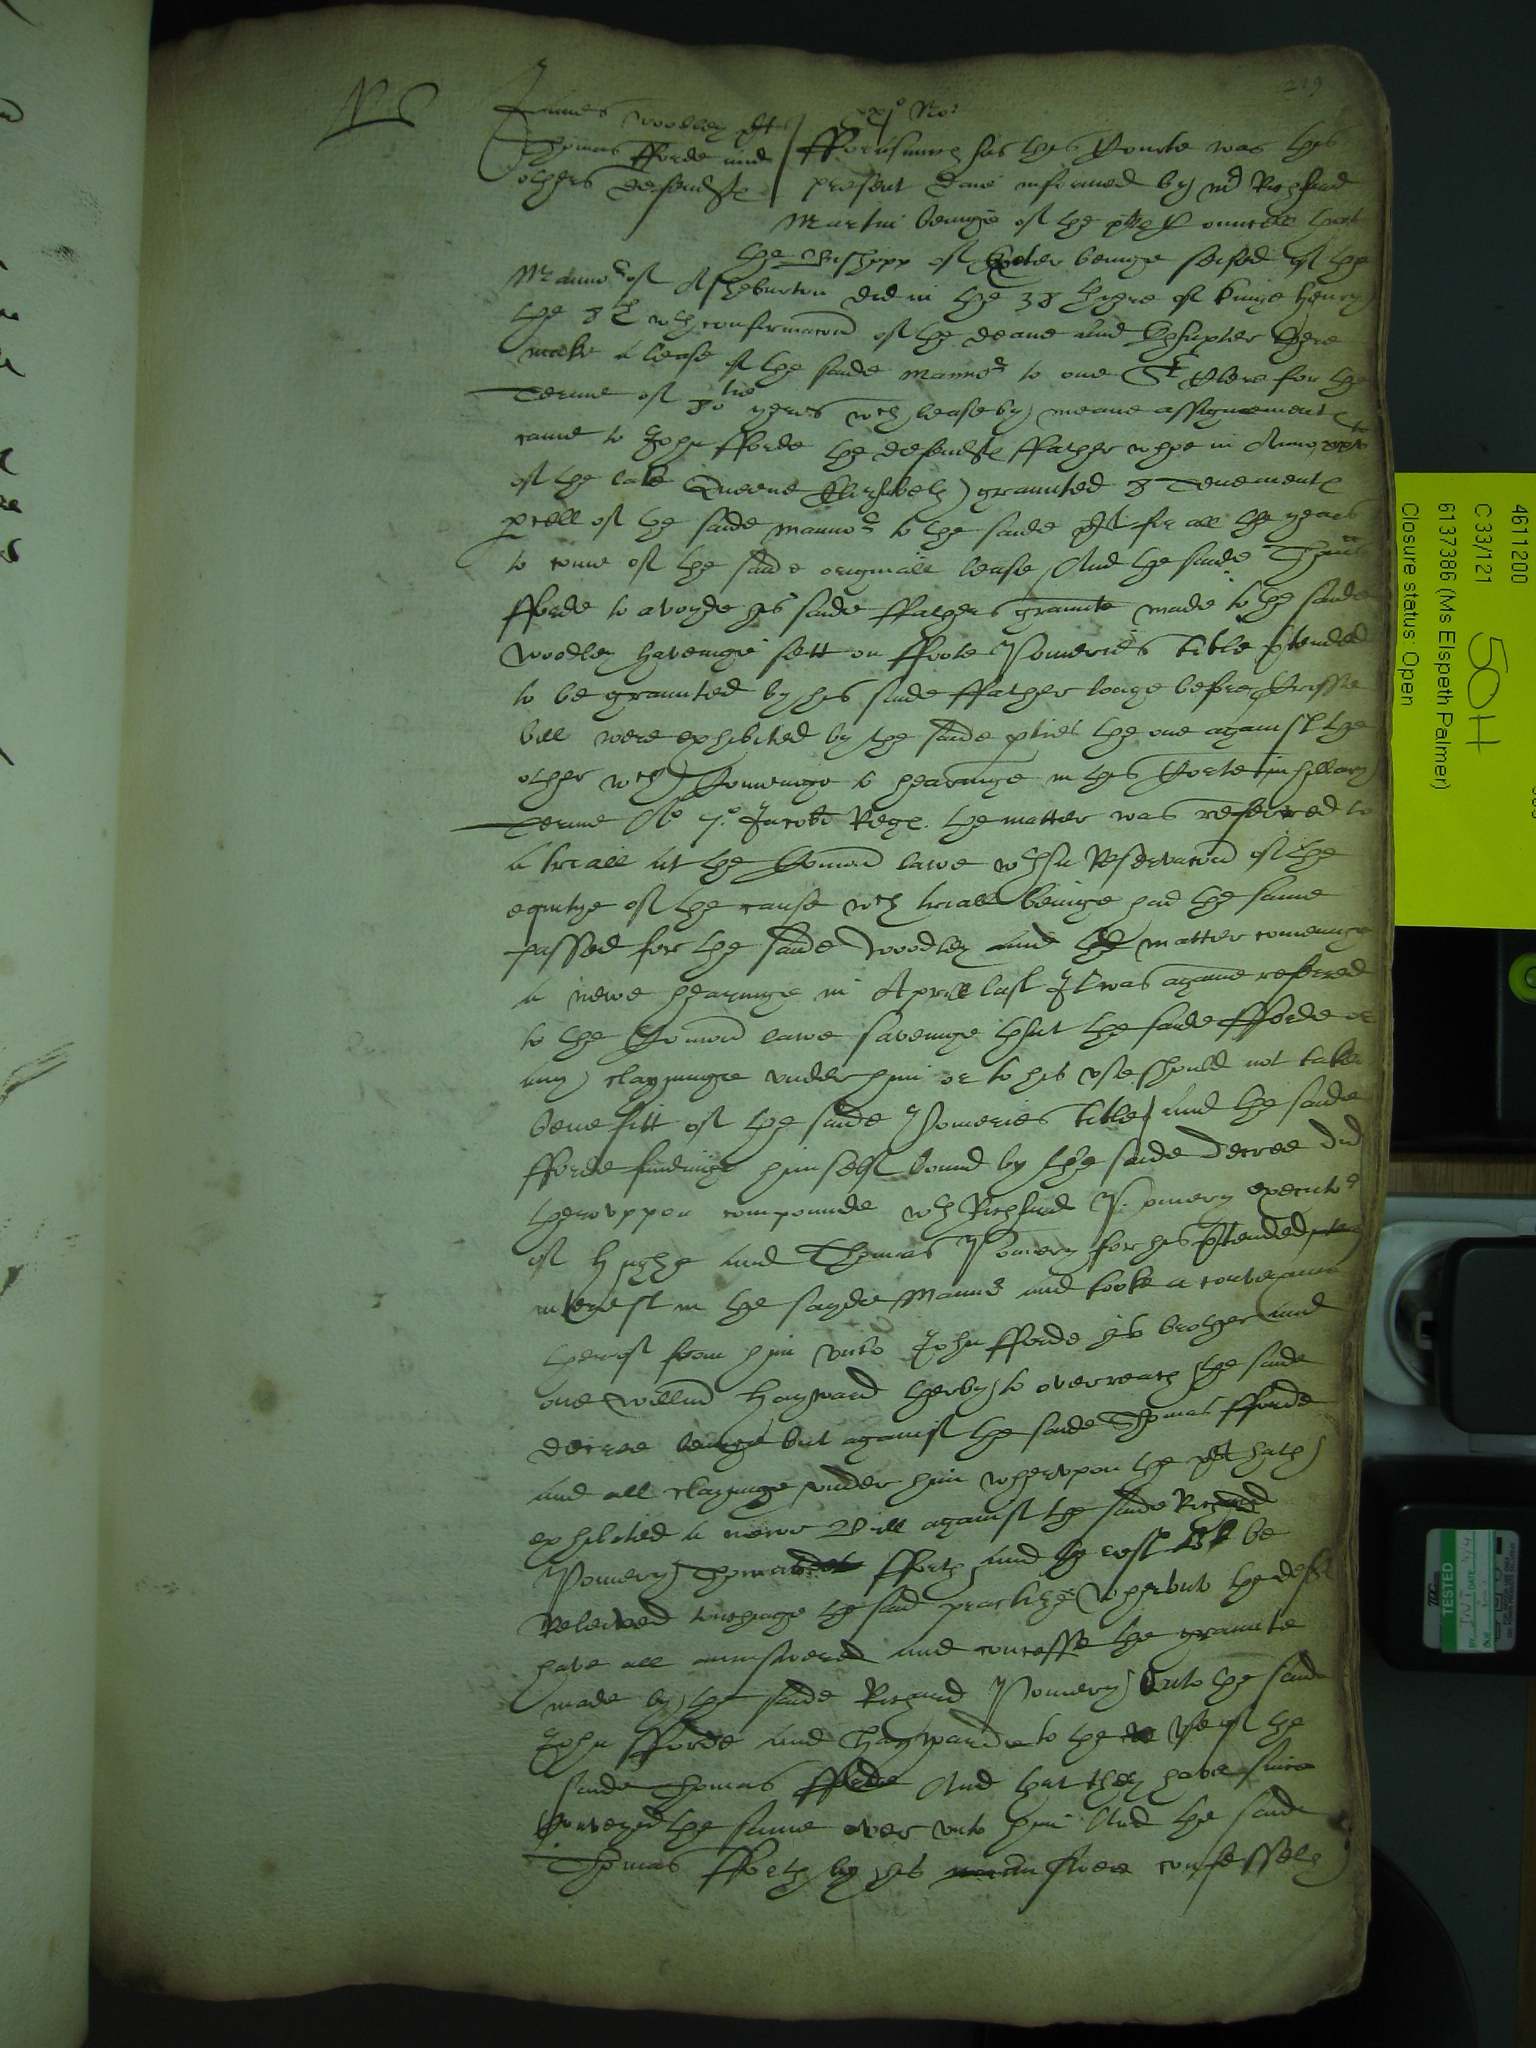 219
xxj° No:
James Woodley plt
Thomas fforde and
others defendtes
fforasmuch as this Courte was this
present daie informed by mr Richard
Martin beinge of the ptes Councell that
the Bishopp of Exeter beinge seised of the
Mannor of Asheburton did in the 38 yeere of kinge Henry
the 8th wth confirmacon of the deane and Chapter there
make a lease of the saide mannor to one St Clere for the
Terme of 80tie yeres wch lease by meane assignementes
came to John fforde the defendtes ffather whoe in Anno
of the late Queene Elizabeth graunted 8 Tenementes
pcell of the saide mannor to the saide plt for all the yeares
to come of the saide originall lease, And the saide Thomas
fforde to avoyde his saide ffathers graunte made to the saide
Woodley haveinge sett on ffoote Pomeries title ptended
to be graunted by his saide ffather longe before Crosse
bill were exhibited by the saide pties the one against the
other wch Comeinge to hearinge in this Corte in hillary
Terme A° 7° Jacobi Regis the matter was referred to
a triall at the Comon lawe wth a Reservacon of the
equitye of the cause wch triall beinge had the same
passed for the saide Woodley and the matter comeinge
a newe hearinge in Aprill last It was againe referred
to the Comon lawe saveinge that the saide fforde or
any clayminge under him or to his use should not take
benefitt of the saide Pomeries title, and the saide
fforde findinge himself bound by the saide decree did
therevppon compounde wth Richard Pomery executor
of Hughe and Thomas Pomery for his ptended
interest in the saydie Mannor and tooke a conveiance
therof from him unto John fforde his brother and
one Willm Hayward therby to overreach the saide
decree beinge but against the saide Thomas fforde
and all clayminge under him whervpon the plt hath
exhibited a newe Bill against the saide Richard
Pomery Thomas fforth and the rest to be
Releived touchinge the said practize Wherunto the defts
have all aunswered and confesse the graunte
made by the saide Richard Pomery unto the saide
John fforde and Haywarde to the use of the
saide Thomas fforde And that they have since
Conveyed the same over unto him And the saide
Thomas fforth by his answere confesseth
4611200
C 33/121
6137386 (Ms Elspeth Palmer)
Closure status: Open
50H
TESTED